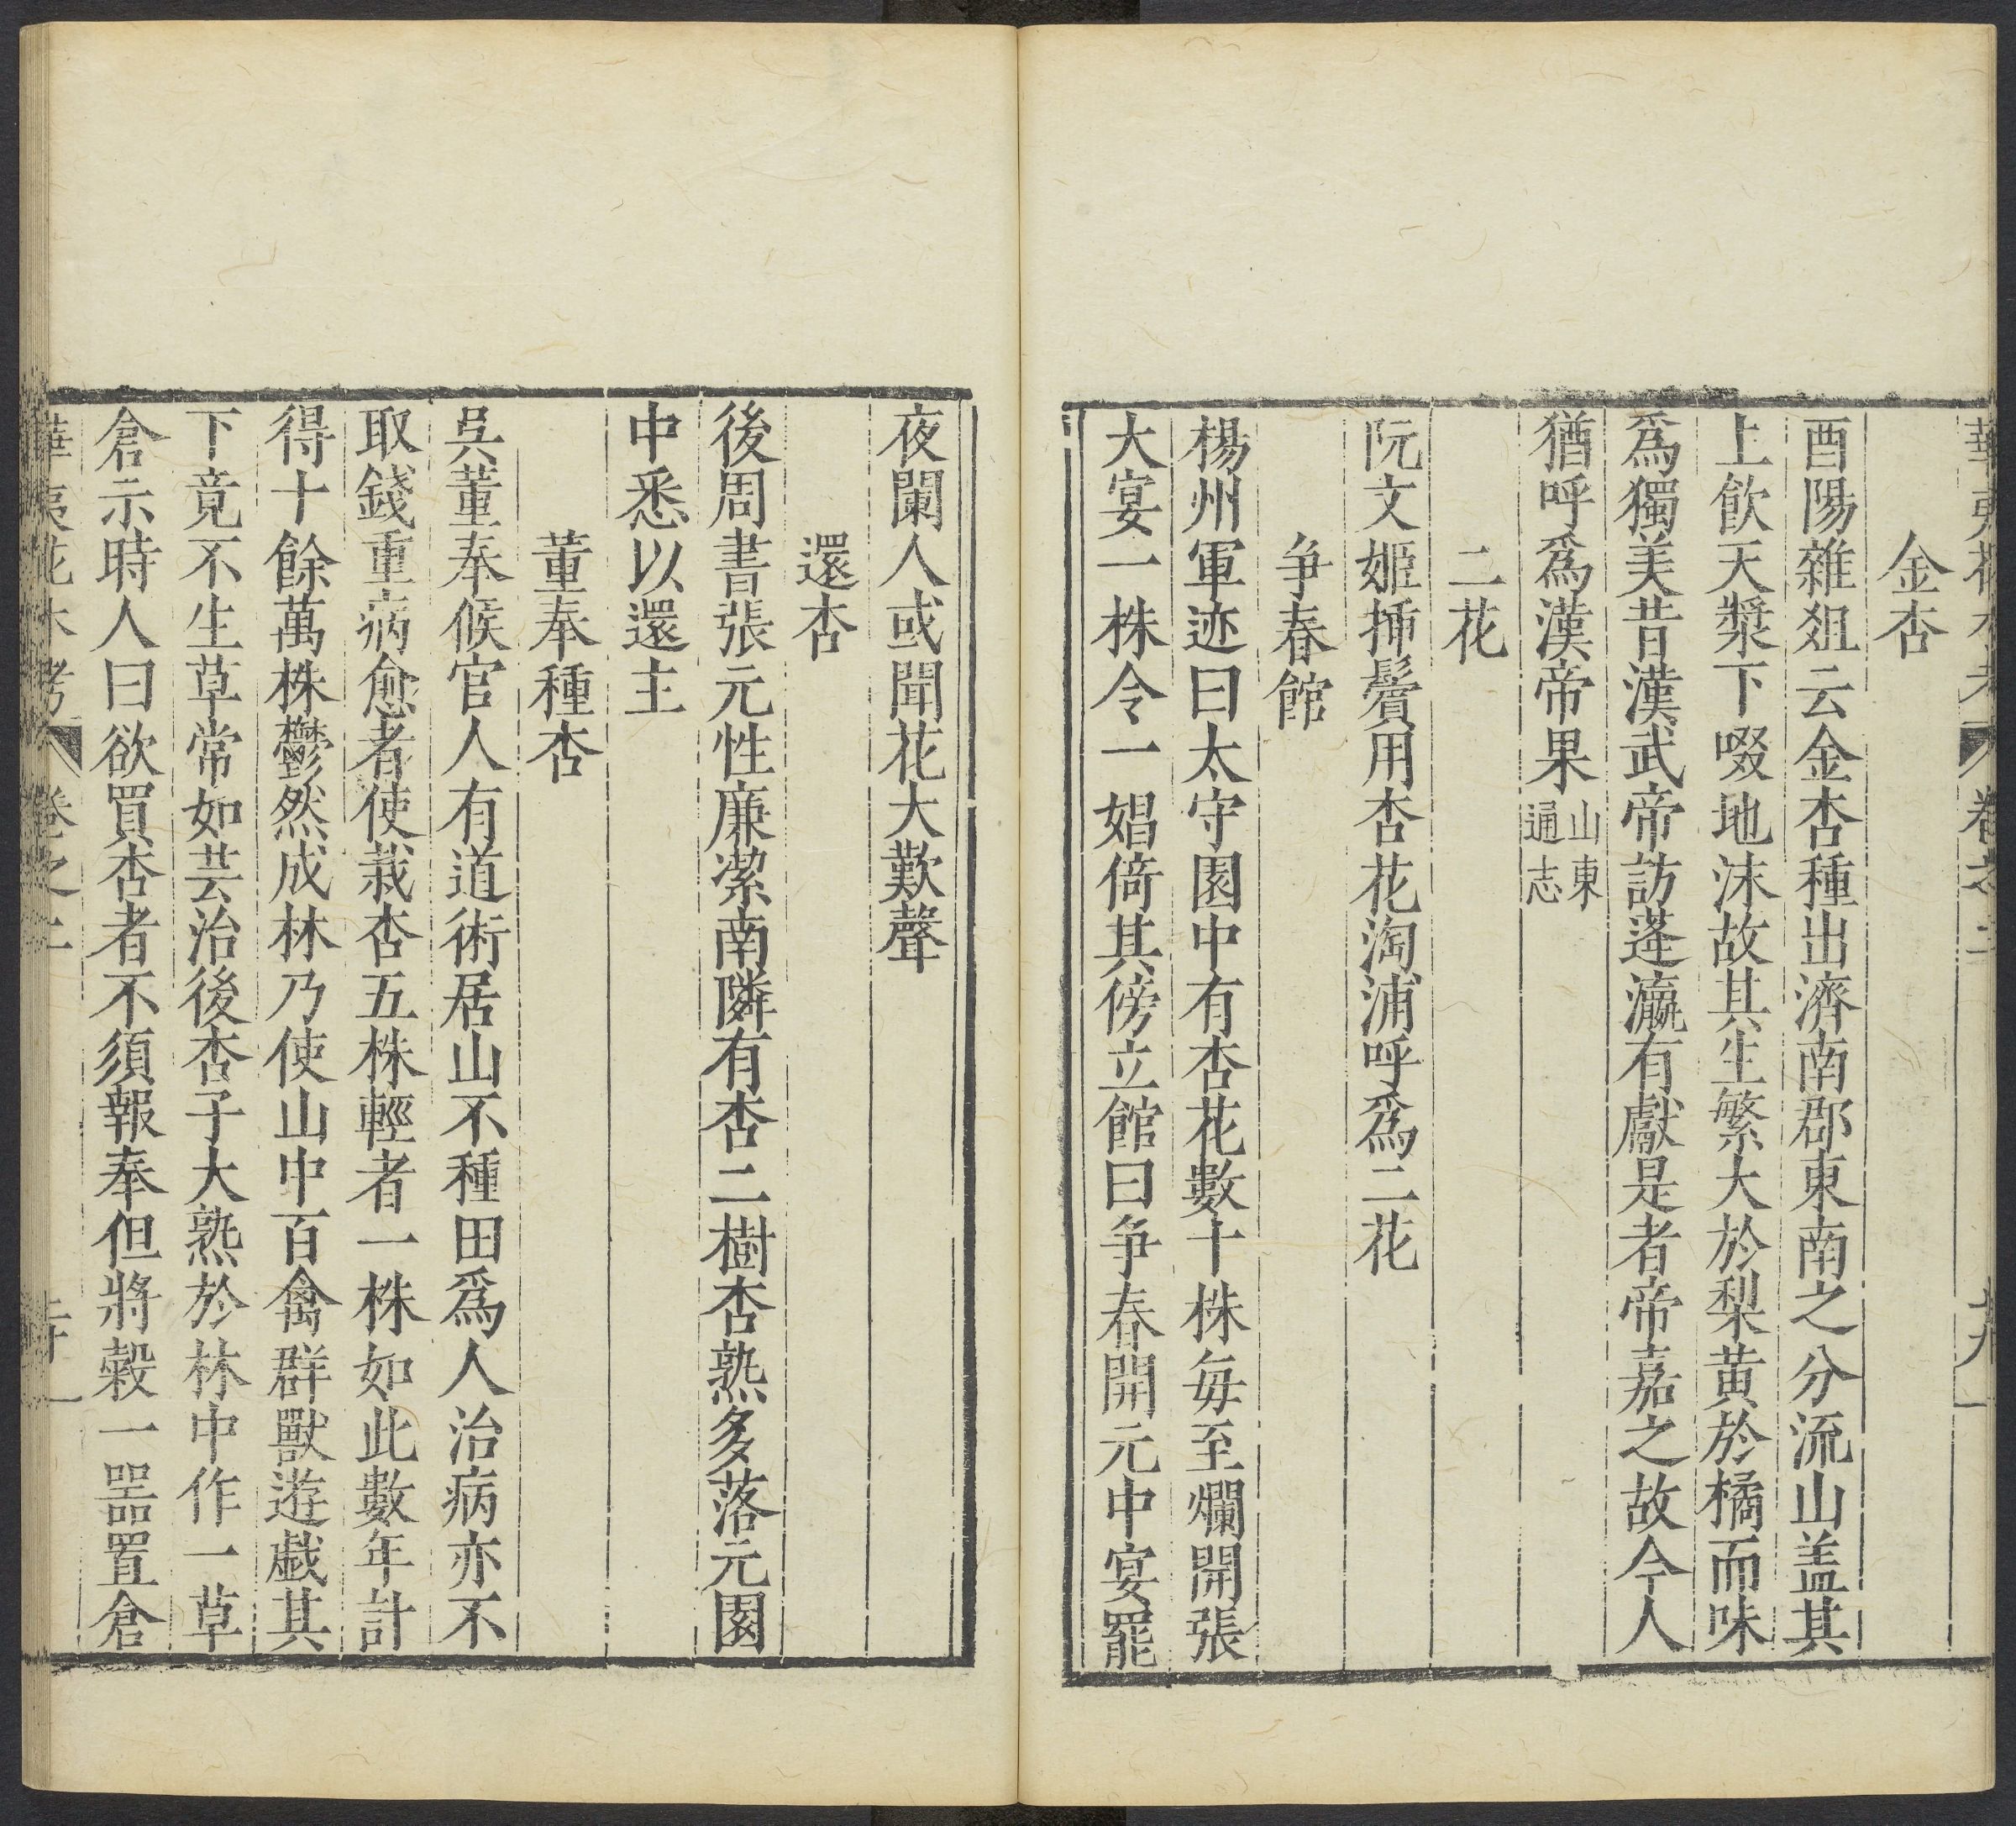 金杏
酉陽雜爼云金杏種出濟南郡東南之分流山盖其
上飲天漿下啜地沫故其生繁大於梨黄於橘而味
爲獨美昔漢武帝訪蓬瀛有獻是者帝嘉之故今人
猶呼爲漢帝果山東通志
二花
阮文姬揷鬢用杏花淘浦呼爲二花
争春館
楊州軍迹曰太守園中有杏花數十株每至爛開張
大宴一株令一娼倚其傍立館曰争春開元中宴罷
夜闌人或聞花大歎聲
還杏
後周書張元性廉潔南隣有杏二樹杏熟多落元園
中悉以還主
董奉種杏
吳董奉候官人有道術居山不種田爲人治病亦不
取錢重病愈者使栽杏五株輕者一株如此數年計
得十餘萬株鬱然成林乃使山中百禽群獸遊戯其
下竟不生草常如芸治後杏子大熟於林中作一草
倉示時人曰欲買杏者不須報奉但將穀一噐置倉
華夷花木考 卷之二